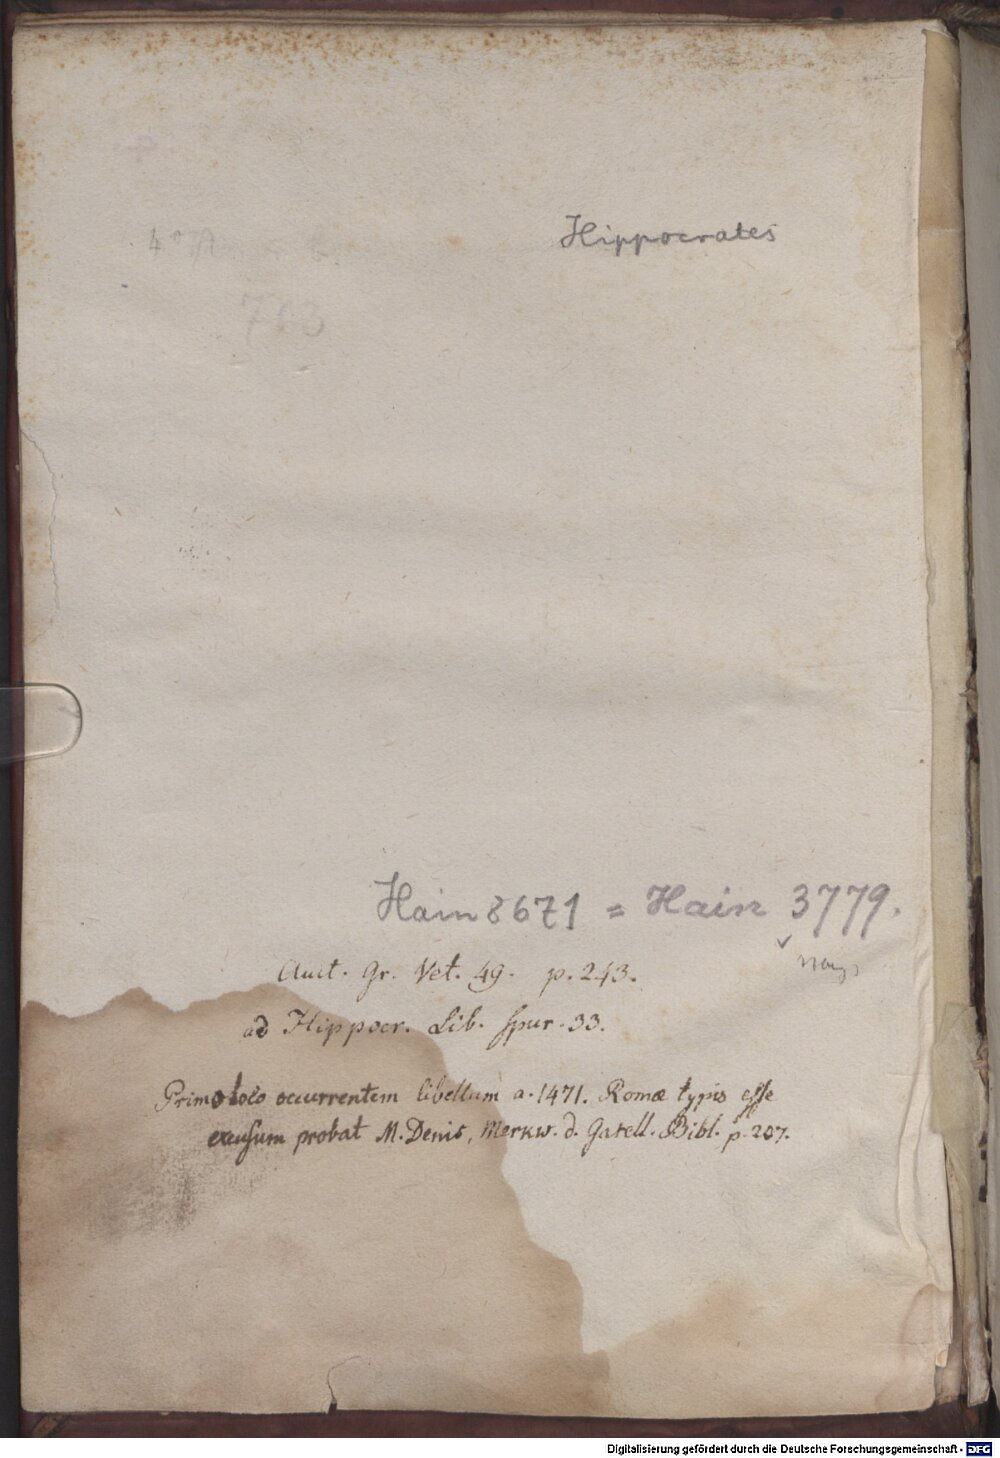 Hippocrates
4° A
Hain 8671 = Hain 3779.
Auct. Gr. Vet. 49. p. 243.
ad Hippocr. Lib. spur. 33.
Primo loco occurrentem libellum a. 1471. Romæ typis esse
excusum probat M. Denis, Merkw. d. Garell. Bibl. p. 207.
Digitalisierung gefördert durch die Deutsche Forschungsgemeinschaft - DFG